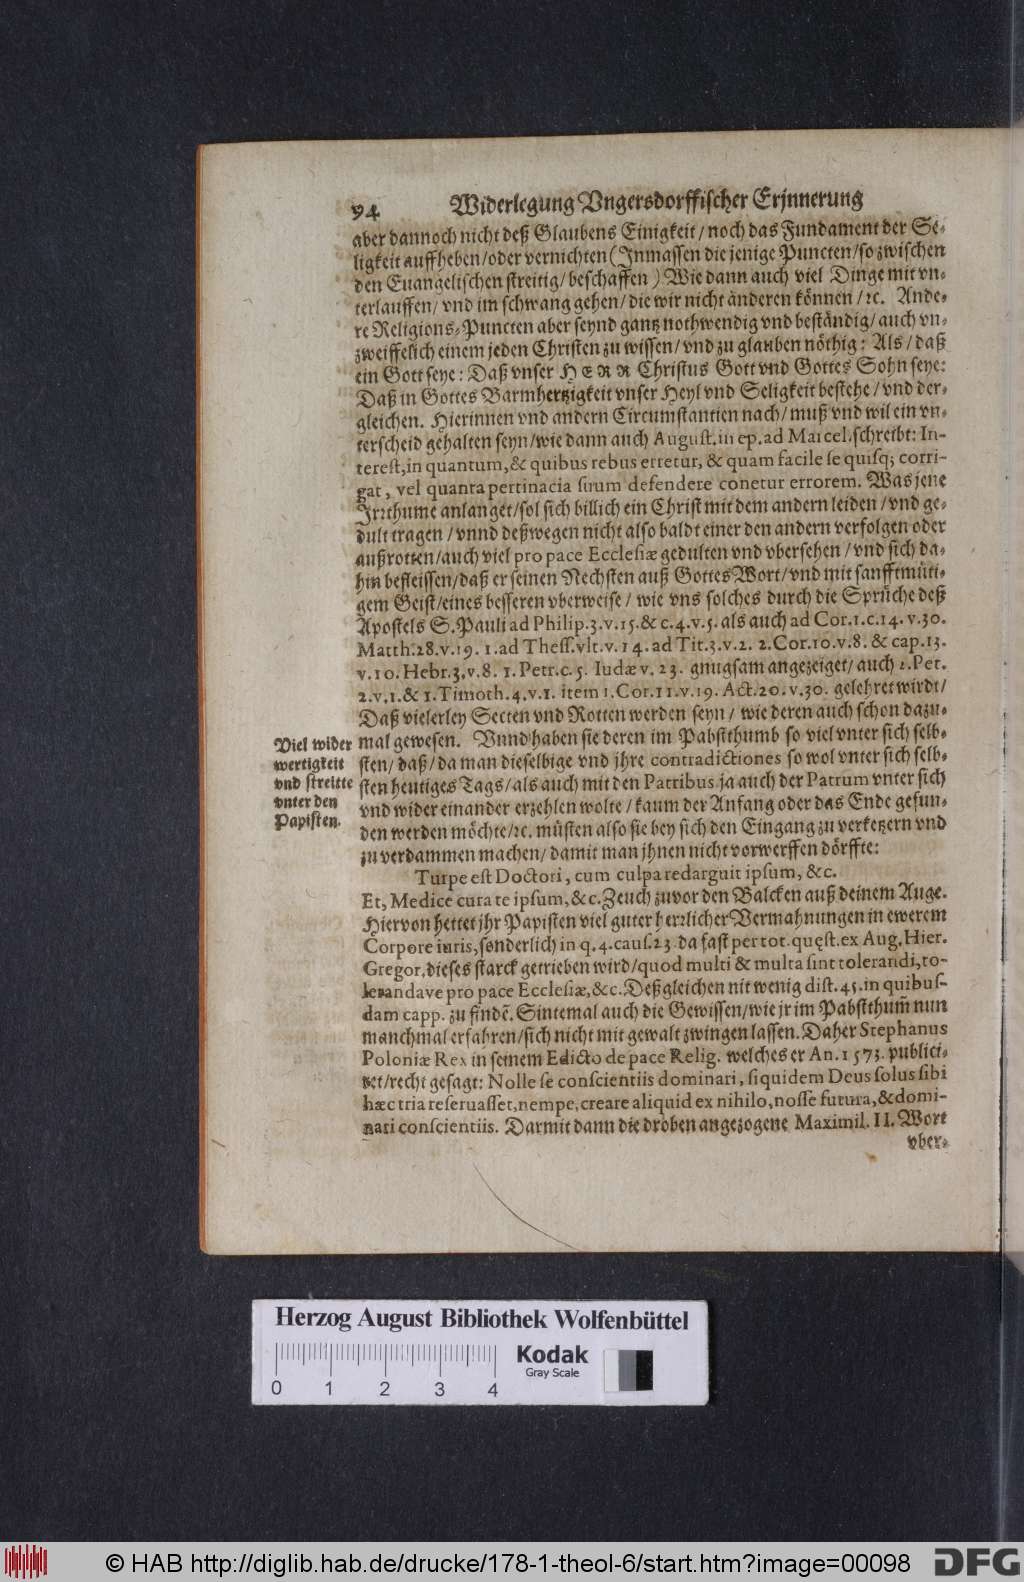 94 Widerlegung Vngersdorffischer Erjnnerung
aber dannoch nicht deß Glaubens Einigkeit/ noch das Fundament der Se-
ligkeit auffheben/oder vernichten (Inmassen die jenige Puncten/so zwischen
den Euangelischen streitig/beschaffen) Wie dann auch viel Dinge mit vn-
terlauffen/ vnd im schwang gehen/ die wir nicht änderen können/ ꝛc. Ande-
re Religions-Puncten aber seynd gantz nothwendig vnd beständig/ auch vn-
zweiffelich einem jeden Christen zu wissen/ vnd zu glauben nöthig: Als/ daß
ein Gott seye: Daß vnser HERR Christus Gott vnd Gottes Sohn seye:
Daß in Gottes Barmhertzigkeit vnser Heyl vnd Seligkeit bestehe/ vnd der-
gleichen. Hierinnen vnd andern Circumstantien nach/ muß vnd wil ein vn-
terscheid gehalten seyn/wie dann auch August. in ep. ad Marcel. schreibt: In-
terest, in quantum, & quibus rebus erretur, & quam facile se quisq; corri-
gat, vel quanta pertinacia suum defendere conetur errorem. Was jene
Irrthume anlanget/sol sich billich ein Christ mit dem andern leiden/ vnd ge-
dult tragen/ vnnd deßwegen nicht also baldt einer den andern verfolgen oder
außrotten/auch viel pro pace Ecclesiæ gedulten vnd vbersehen/ vnd sich da-
hin befleissen/daß er seinen Nechsten auß Gottes Wort/vnd mit sanfftmüti-
gem Geist/eines besseren vberweise/ wie vns solches durch die Sprüche deß
Apostels S. Pauli ad Philip. 3. v. 15. & c. 4. v. 5. als auch ad Cor. 1. c. 14. v. 30.
Matth. 28. v. 19. 1. ad Thess. vlt. v. 14. ad Tit. 3. v. 2. 2. Cor. 10. v. 8. & cap. 13.
v. 10. Hebr. 3. v. 8. 1. Petr. c. 5. Iudæ v. 23. gnugsam angezeiget/ auch 2. Pet.
2. v. 1. & 1. Timoth. 4. v. 1. item 1. Cor. 11. v. 19. Act. 20. v. 30. gelehret wirdt/
Daß vielerley Secten vnd Rotten werden seyn/ wie deren auch schon dazu-
mal gewesen. Vnnd haben sie deren im Pabstthumb so viel vnter sich selb-
sten/ daß/ da man dieselbige vnd jhre contradictiones so wol vnter sich selb-
sten heutiges Tags/als auch mit den Patribus, ja auch der Patrum vnter sich
vnd wider einander erzehlen wolte/ kaum der Anfang oder das Ende gefun-
den werden möchte/ꝛc. müsten also sie bey sich den Eingang zu verketzern vnd
zu verdammen machen/ damit man jhnen nicht vorwerffen dörffte:
Viel wider
wertigkeit
vnd streitte
vnter den
Papisten.
Turpe est Doctori, cum culpa redarguit ipsum, &c.
Et, Medice cura te ipsum, &c. Zeuch zuvor den Balcken auß deinem Auge.
Hiervon hettet jhr Papisten viel guter herrlicher Vermahnungen in ewerem
Corpore iuris, sonderlich in q. 4. caus. 23. da fast per tot. quęst. ex Aug. Hier.
Gregor. dieses starck getrieben wird/quod multi & multa sint tolerandi, to-
lerandave pro pace Ecclesiæ, &c. Deßgleichen nit wenig dist. 45. in quibus-
dam capp. zu findē. Sintemal auch die Gewissen/wie jr im Pabstthum̃ nun
manchmal erfahren/sich nicht mit gewalt zwingen lassen. Daher Stephanus
Poloniæ Rex in seinem Edicto de pace Relig. welches er An. 1573. publici-
ret/recht gesagt: Nolle se conscientiis dominari, siquidem Deus solus sibi
hæc tria reseruasset, nempe, creare aliquid ex nihilo, nosse futura, & domi-
nari conscientiis. Darmit dann die droben angezogene Maximil. II. Wort
vber-
Herzog August Bibliothek Wolfenbüttel
Kodak
Gray Scale
0 1 2 3 4
© HAB http://diglib.hab.de/drucke/178-1-theol-6/start.htm?image=00098
DFG